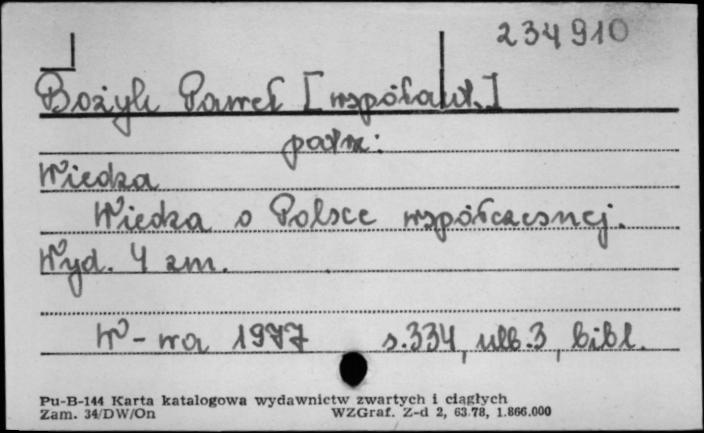 234910
Bożyk Paweł [współaut.]
patrz:
Wiedza
Wiedza o Polsce współczesnej.
Wyd. 4 zm.
W-wa 1977 s. 334, nlb. 3, bibl.
Pu-B-144 Karta katalogowa wydawnictw zwartych i ciągłych
Zam. 34/DW/On WZGraf. Z-d 2, 63.78, 1.866.000